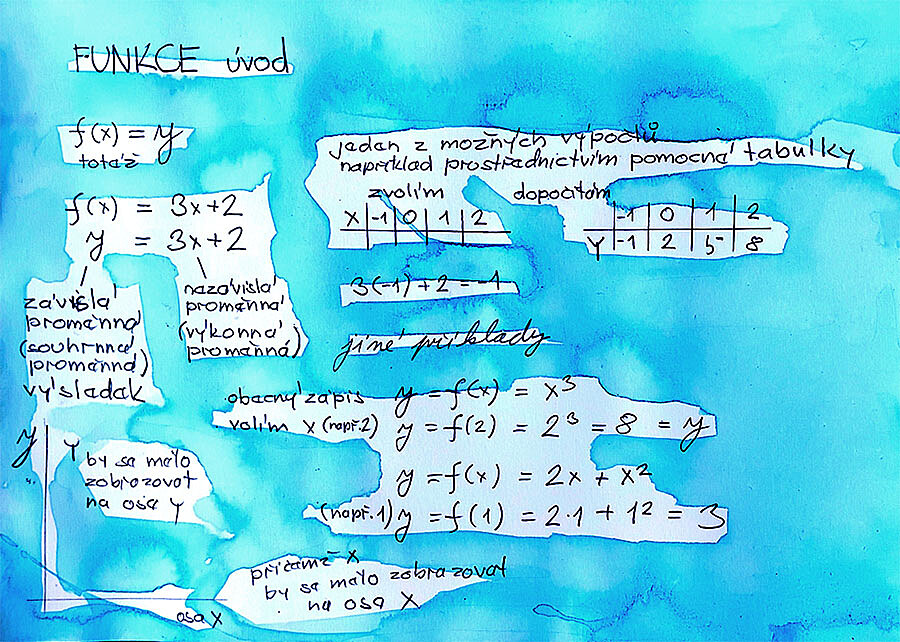 FUNKCE úvod
f(x) = y
totéž
f(x) = 3x+2
y = 3x+2
závislá
proměnná
(souhrnná
proměnná)
výsledek
nezávislá
proměnná
(výkonná
proměnná)
jeden z možných výpočtů
například prostřednictvím pomocné tabulky
zvolím
X -1 0 1 2
dopočítám
-1 0 1 2
Y -1 2 5 8
3(-1)+2 = -1
jiné příklady
obecný zápis y = f(x) = x³
volím x (např. 2) y = f(2) = 2³ = 8 = y
y = f(x) = 2x + x²
(např. 1) y = f(1) = 2·1 + 1² = 3
y
Y
by se mělo
zobrazovat
na ose Y
přičemž X
by se mělo zobrazovat
na ose X
osa X